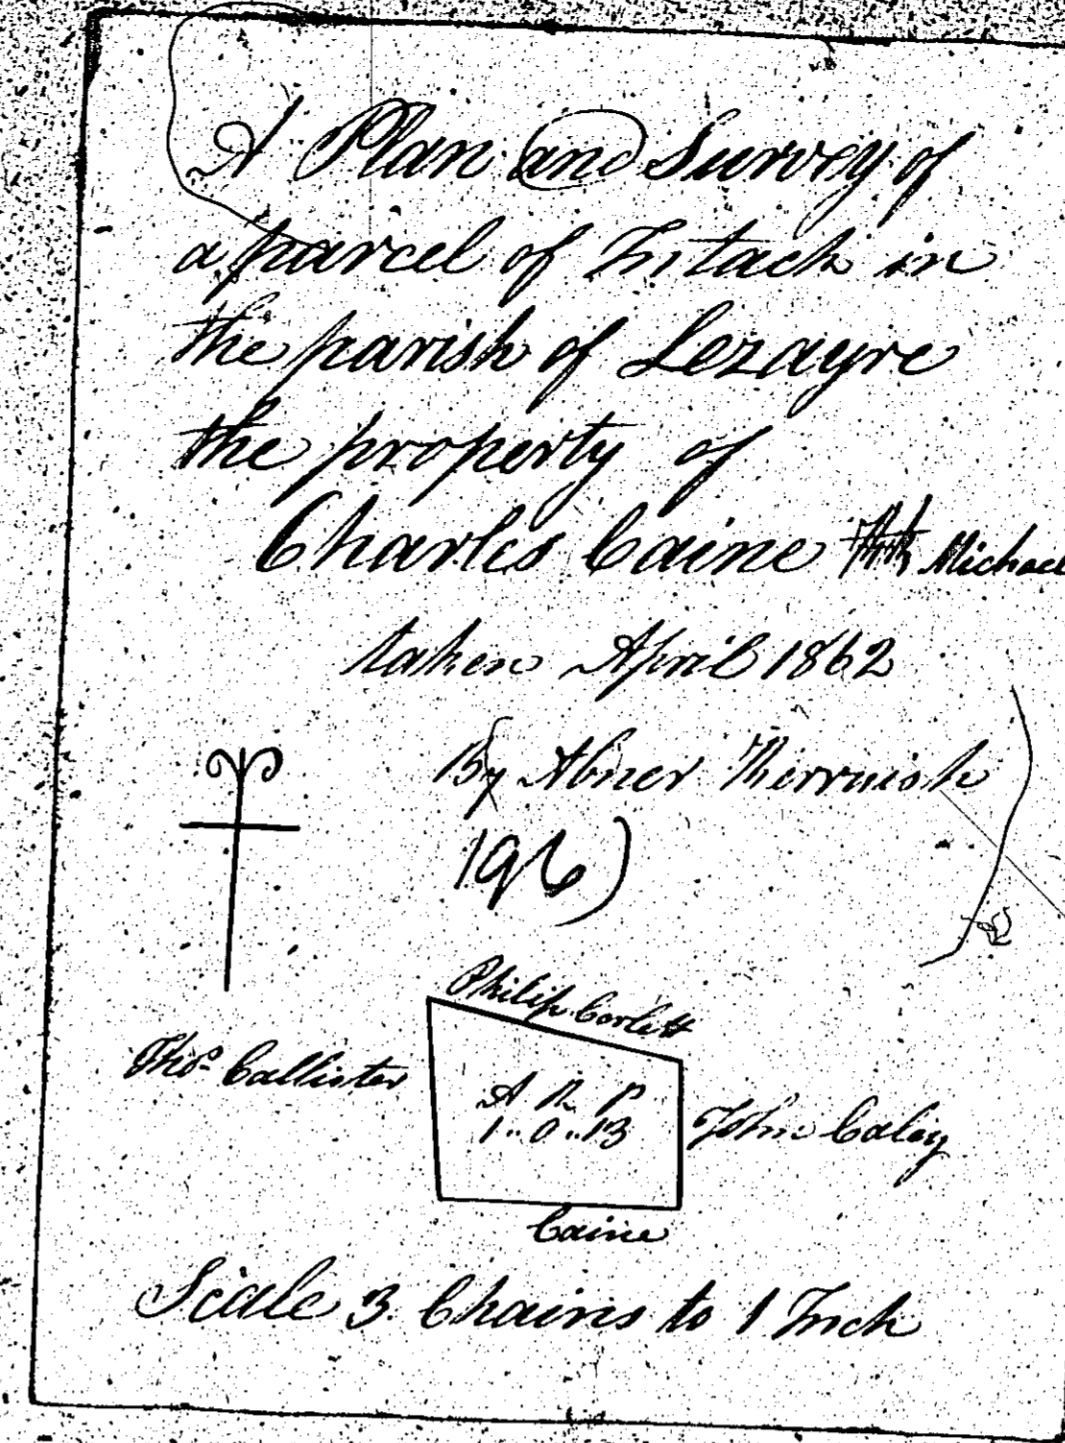 A Plan and Survey of
a parcel of Intack in
the parish of Lezayre
the property of
Charles Caine Michael
taken April 1862
By Abner
196)
Philip Corlett
Thos. Callister
A R P
1..0..13
John Caley
Caine
Scale 3 Chains to 1 Inch